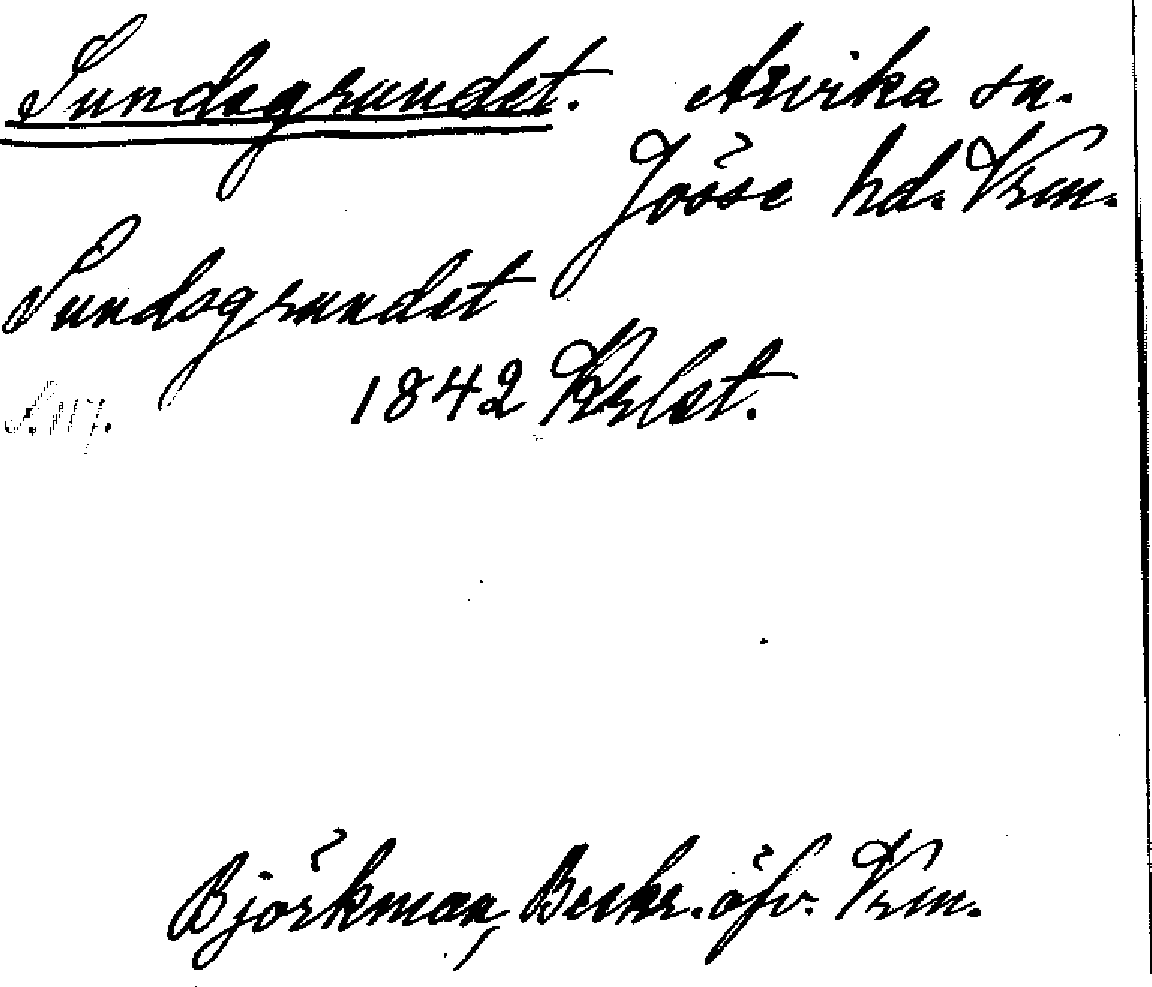 Sundsgrundet. Arvika sn.
Jösse hd. Vrm.
Sundsgrundet
1842 Krlst.
S. 117.
Björkman, Beskr. öfv. Vrm.